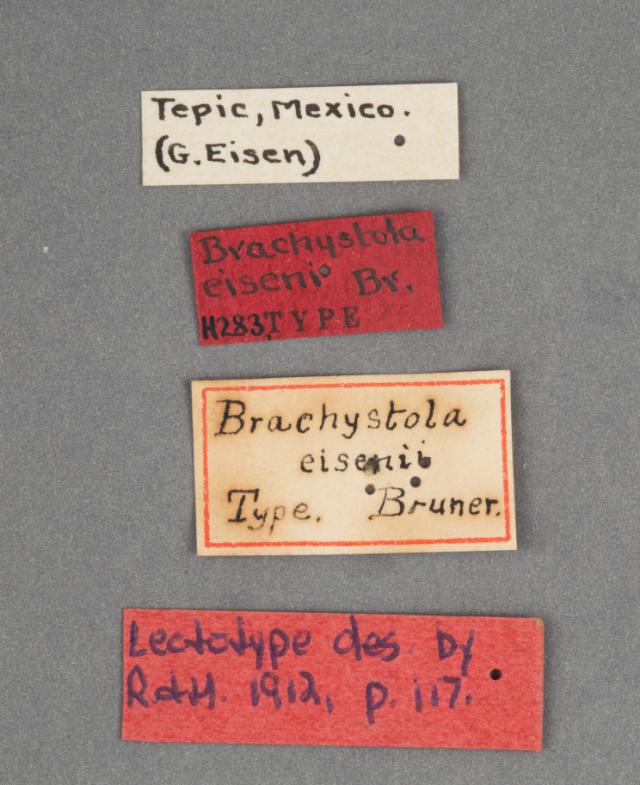 Tepic, Mexico.
(G. Eisen)
Brachystola
eiseni Br.
H283 TYPE
Brachystola
eisenii
Type. Bruner.
Lectotype des. by
R. & H. 1912, p. 117.